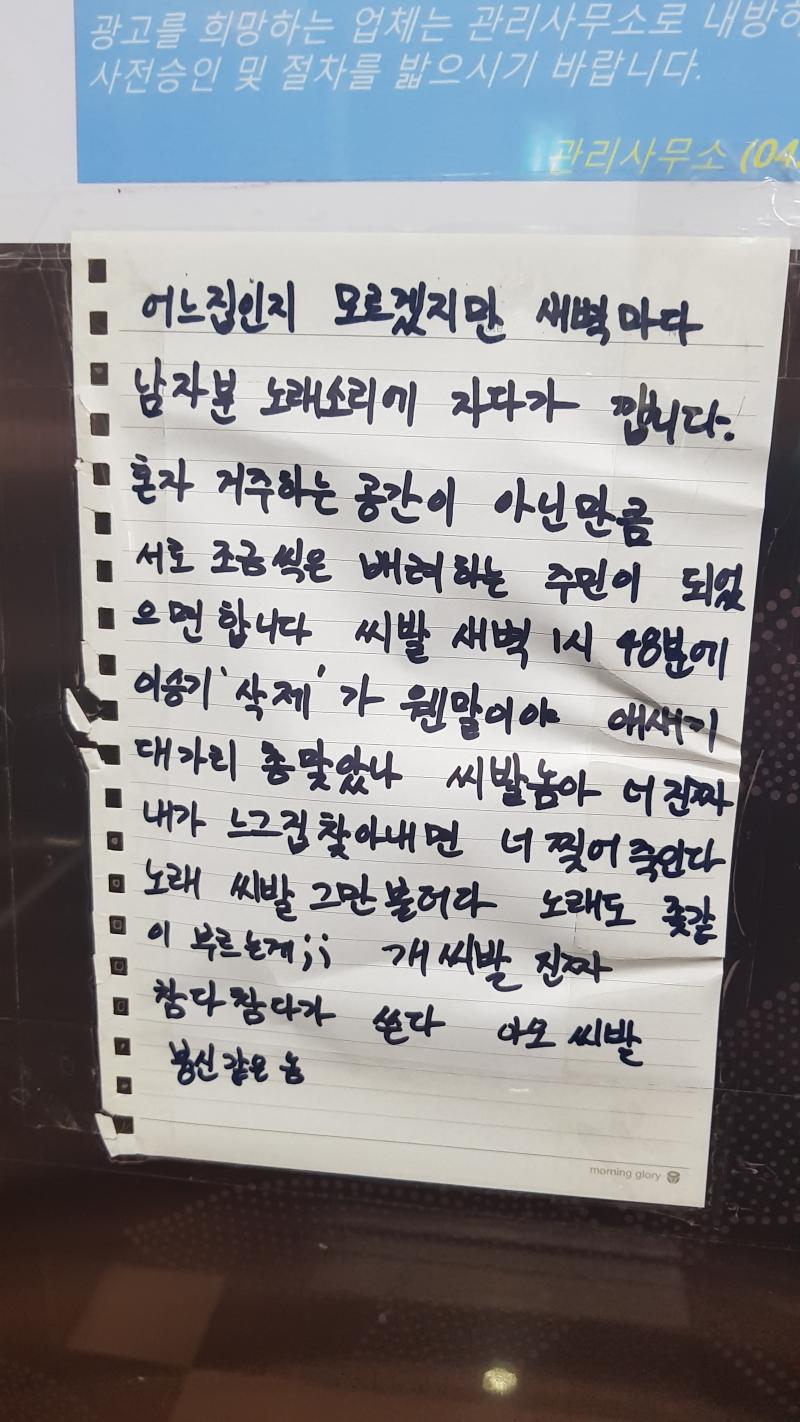 광고를 희망하는 업체는 관리사무소로 내방하
사전승인 및 절차를 밟으시기 바랍니다.
관리사무소 (04
어느집인지 모르겠지만 새벽마다
남자분 노래소리에 자다가 깹니다.
혼자 거주하는 공간이 아닌만큼
서로 조금씩은 배려하는 주민이 되었
으면 합니다 씨발 새벽 1시 48분에
이승기 '삭제' 가 웬말이야 애새기
대가리 총맞았나 씨발놈아 너 진짜
내가 느그집 찾아내면 너 찢어 죽인다
노래 씨발 그만 불러라 노래도 좆같
이 부르는게;; 개씨발 진짜
참다참다가 쓴다 아오 씨발
병신같은 놈
morning glory